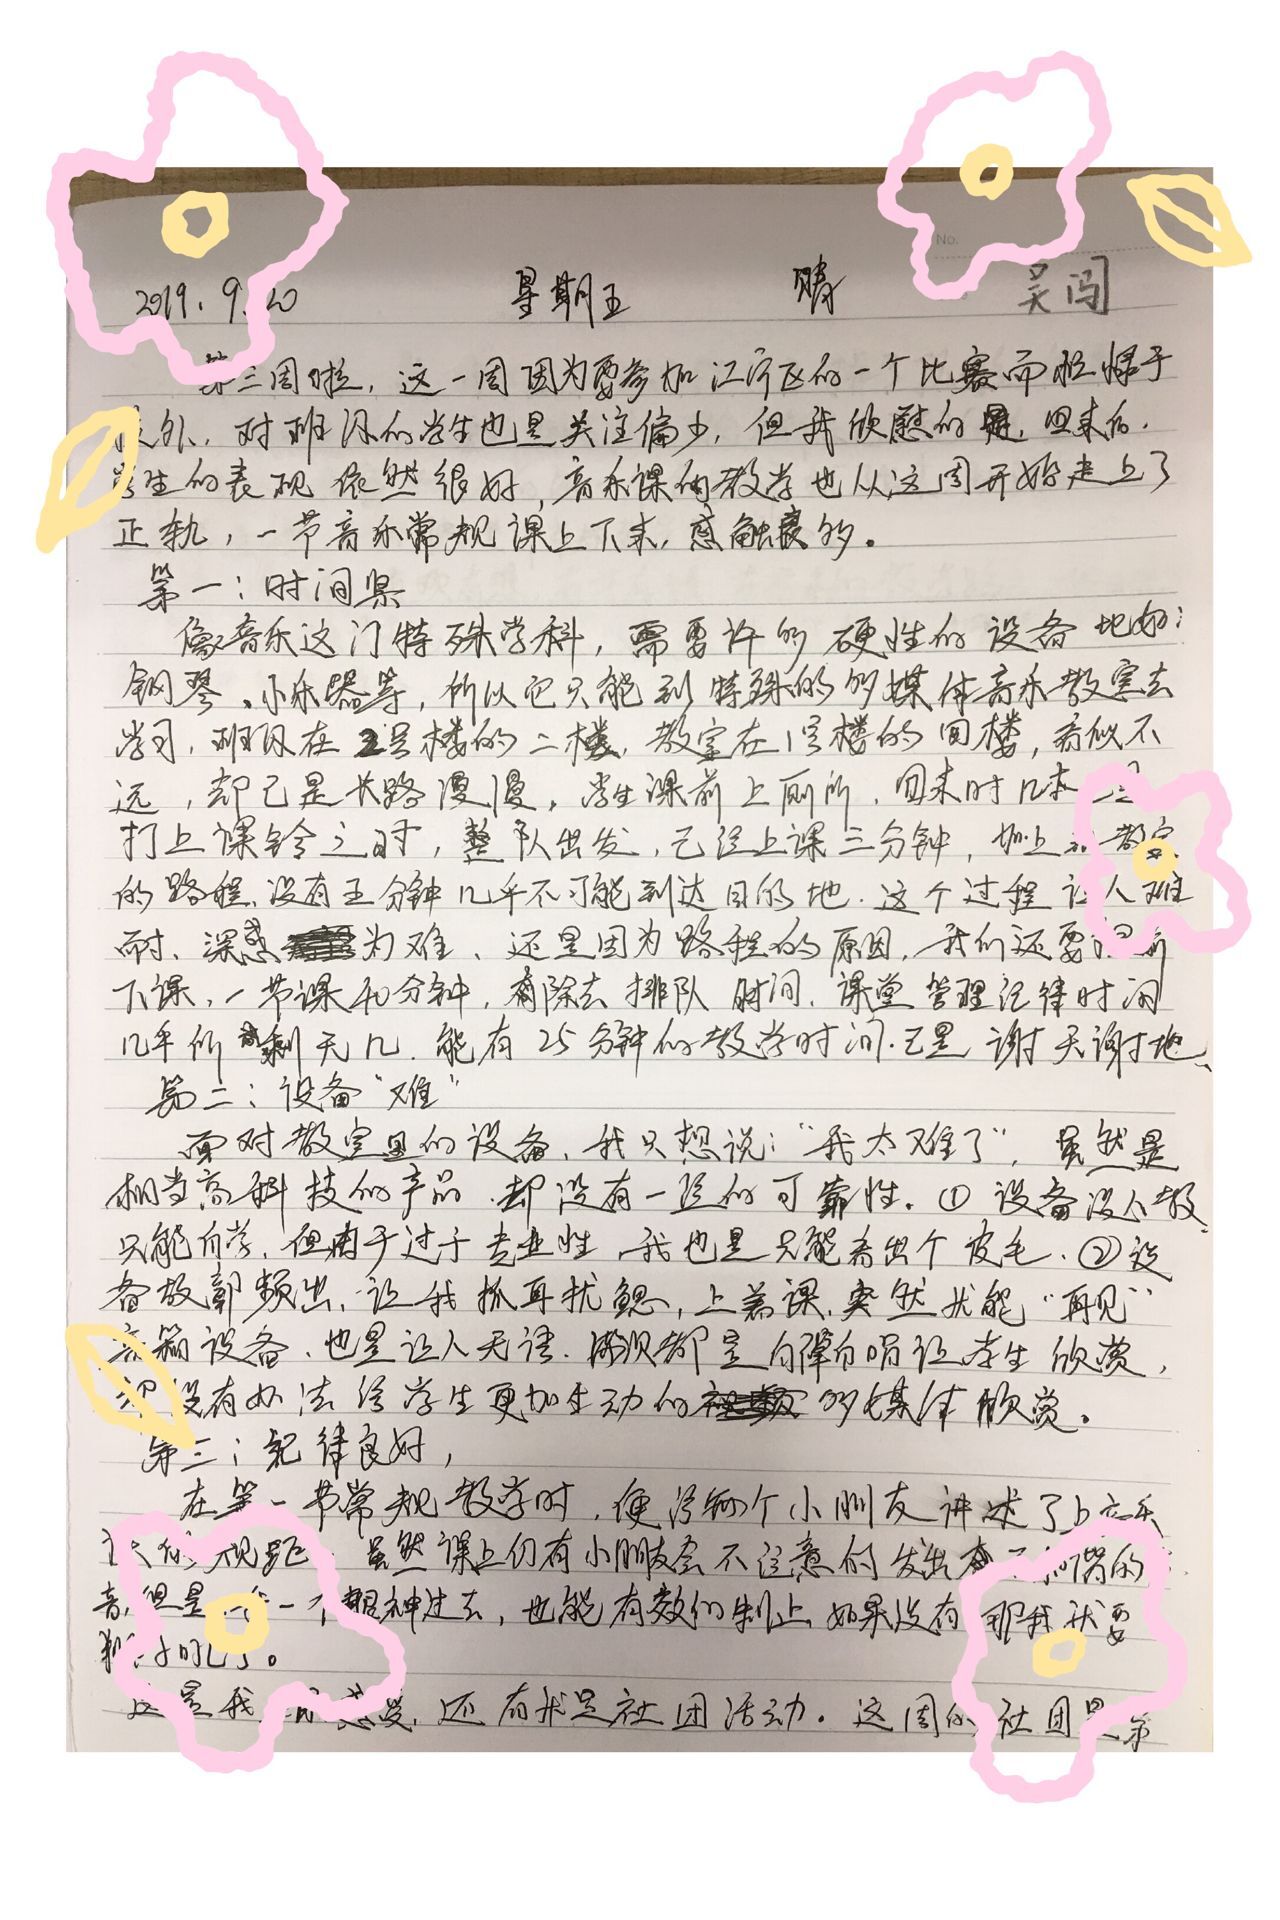 No.
2019.9.20 星期五 晴 吴闯
第三周啦，这一周因为要参加江宁区的一个比赛而
外，对班级的学生也是关注偏少，但我欣慰的是，回来后，
学生的表现依然很好，音乐课的教学也从这周开始走上了
正轨，一节音乐常规课上下来，感触良多。
第一：时间紧
像音乐这门特殊学科，需要许多硬性的设备 如：
钢琴、小乐器等，所以它只能到特殊的多媒体音乐教室去
学习，班级在2号楼的二楼，教室在1号楼的四楼，看似不
远，却已是长路漫漫，学生课前上厕所，回来时几
打上课铃之时，整队出发，已经上课三分钟，加上 教室
的路程，没有五分钟几乎不可能到达目的地。这个过程让人难
耐，深感为难、还是因为路程的原因，我们还要提前
下课，一节课40分钟，再除去排队时间、课堂管理纪律时间
几乎所剩无几，能有25分钟的教学时间，已是谢天谢地。
第二：设备“难”
面对教室里的设备，我只想说：“我太难了”，虽然是
相当高科技的产品，却没有一丝的可靠性。①设备没人教，
只能自学，但由于过于专业性，我也是只能看出个皮毛。②设
备故障频出，让我抓耳扰鳃，上着课，突然就能“再见”
音箱设备，也是让人无语，都是自弹自唱让学生欣赏，
却没有办法给学生更加生动的多媒体欣赏。
第三：纪律良好，
在第一节常规教学时，便给每个小朋友讲述了上音乐
课的规距，虽然课上仍有小朋友会不注意的发出 的
音，但是 一个眼神过去，也能有效的制止，如果没有 那我就要
了。
这是我 感受，还有就是社团活动。这周的社团是第